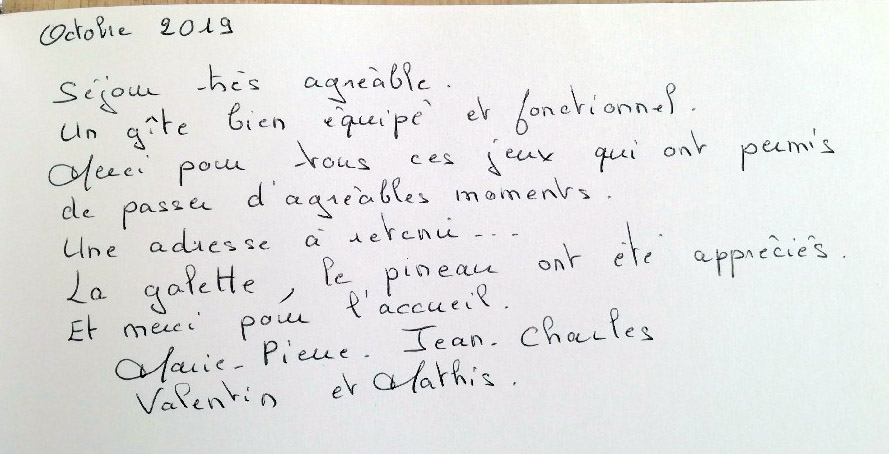 Octobre 2019
Séjour très agréable.
Un gîte bien équipé et fonctionnel.
Merci pour tous ces jeux qui ont permis
de passer d'agréables moments.
Une adresse à retenir...
La galette, le pineau ont été appréciés.
Et merci pour l'accueil.
Marie-Pierre. Jean-Charles
Valentin et Mathis.